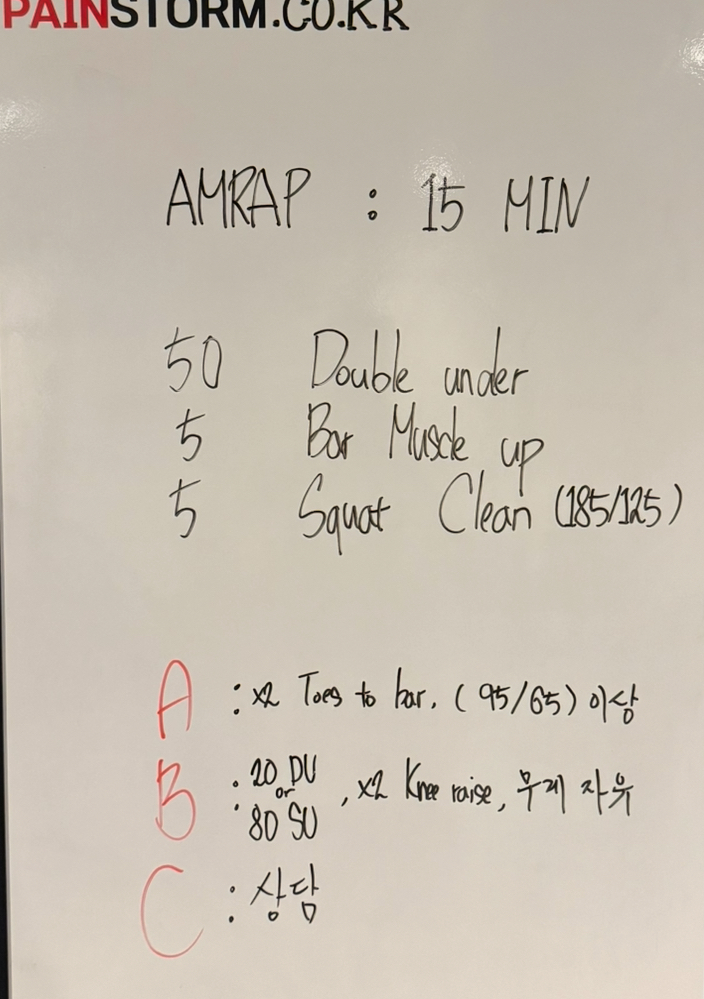 PAINSTORM.CO.KR
AMRAP : 15 MIN
50 Double under
5 Bar Muscle up
5 Squat Clean (185/125)
A : x2 Toes to bar. (95/65) 이상
B : 20 DU or 80 SU , x2 Knee raise, 무게 자유
C : 상담